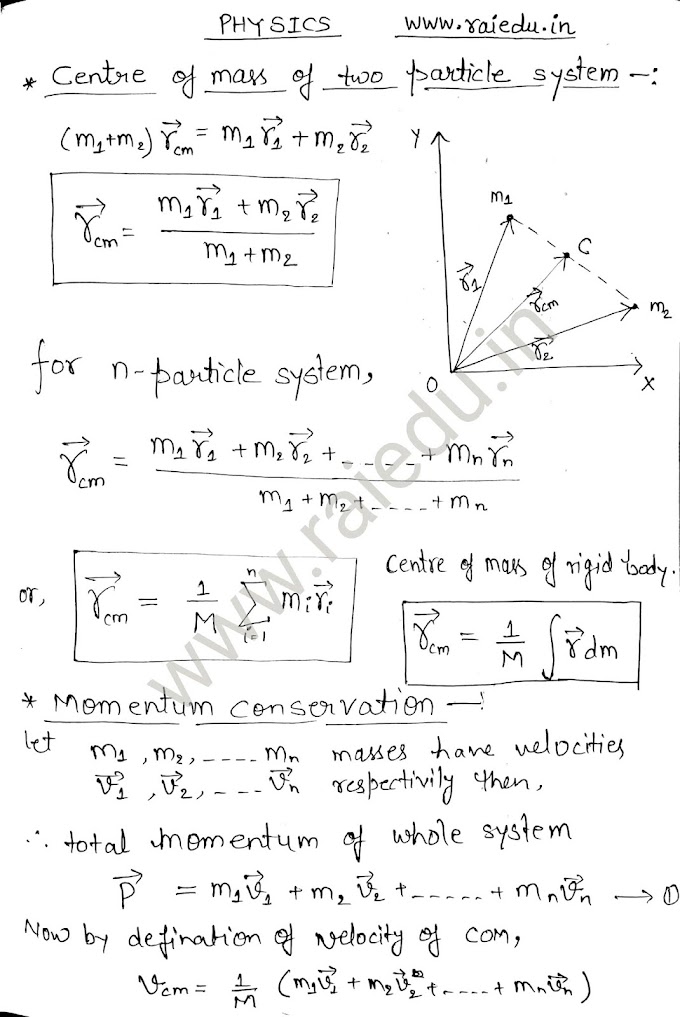 PHYSICS www.raiedu.in
* Centre of mass of two particle system -:
(m₁+m₂) r⃗cm = m₁r⃗₁ + m₂r⃗₂
r⃗cm = (m₁r⃗₁ + m₂r⃗₂) / (m₁+m₂)
Y
m₁
C
m₂
r⃗₁
r⃗cm
r⃗₂
O
X
for n-particle system,
r⃗cm = (m₁r⃗₁ + m₂r⃗₂ + ---- + mₙr⃗ₙ) / (m₁ + m₂ + ----- + mₙ)
or, r⃗cm = 1/M ∑ⁿᵢ₌₁ mᵢr⃗ᵢ
Centre of mass of rigid body.
r⃗cm = 1/M ∫ r⃗ dm
* Momentum conservation -:
let m₁, m₂, ---- mₙ masses have velocities
v⃗₁, v⃗₂, - - - v⃗ₙ respectivily then,
∴ total momentum of whole system
P⃗ = m₁v⃗₁ + m₂v⃗₂ + ------ + mₙv⃗ₙ → ①
Now by defination of velocity of COM,
vcm = 1/M (m₁v⃗₁ + m₂v⃗₂ + ---- + mₙv⃗ₙ)
www.raiedu.in